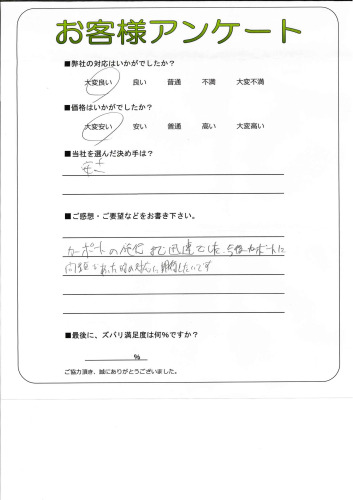 お客様アンケート
■弊社の対応はいかがでしたか？
大変良い 良い 普通 不満 大変不満
■価格はいかがでしたか？
大変安い 安い 普通 高い 大変高い
■当社を選んだ決め手は？
■ご感想・ご要望などをお書き下さい。
カーポートの施行 も迅速でした、今後カーポートに
問題があった時の対応に期待したいです
■最後に、ズバリ満足度は何%ですか？
%
ご協力頂き、誠にありがとうございました。